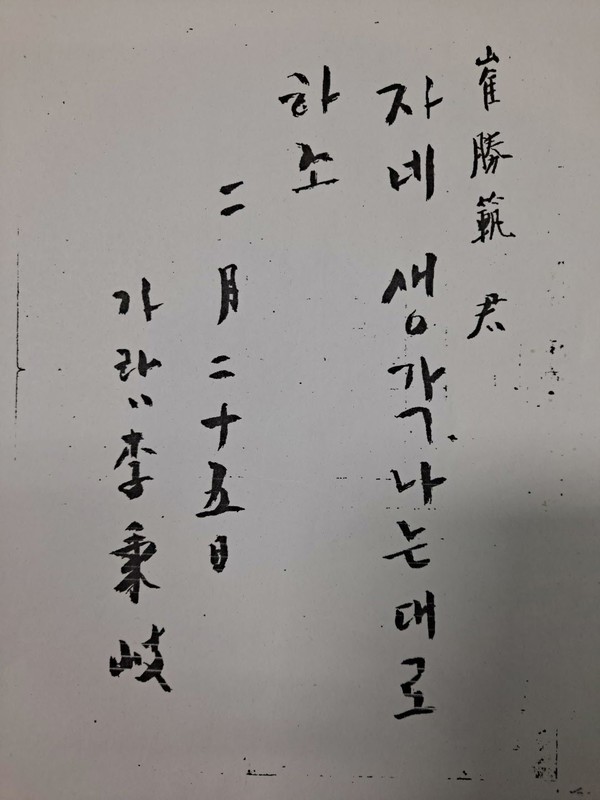 崔勝範 君
자네 생각나는대로
하소
二月二十五日
가람 李秉岐